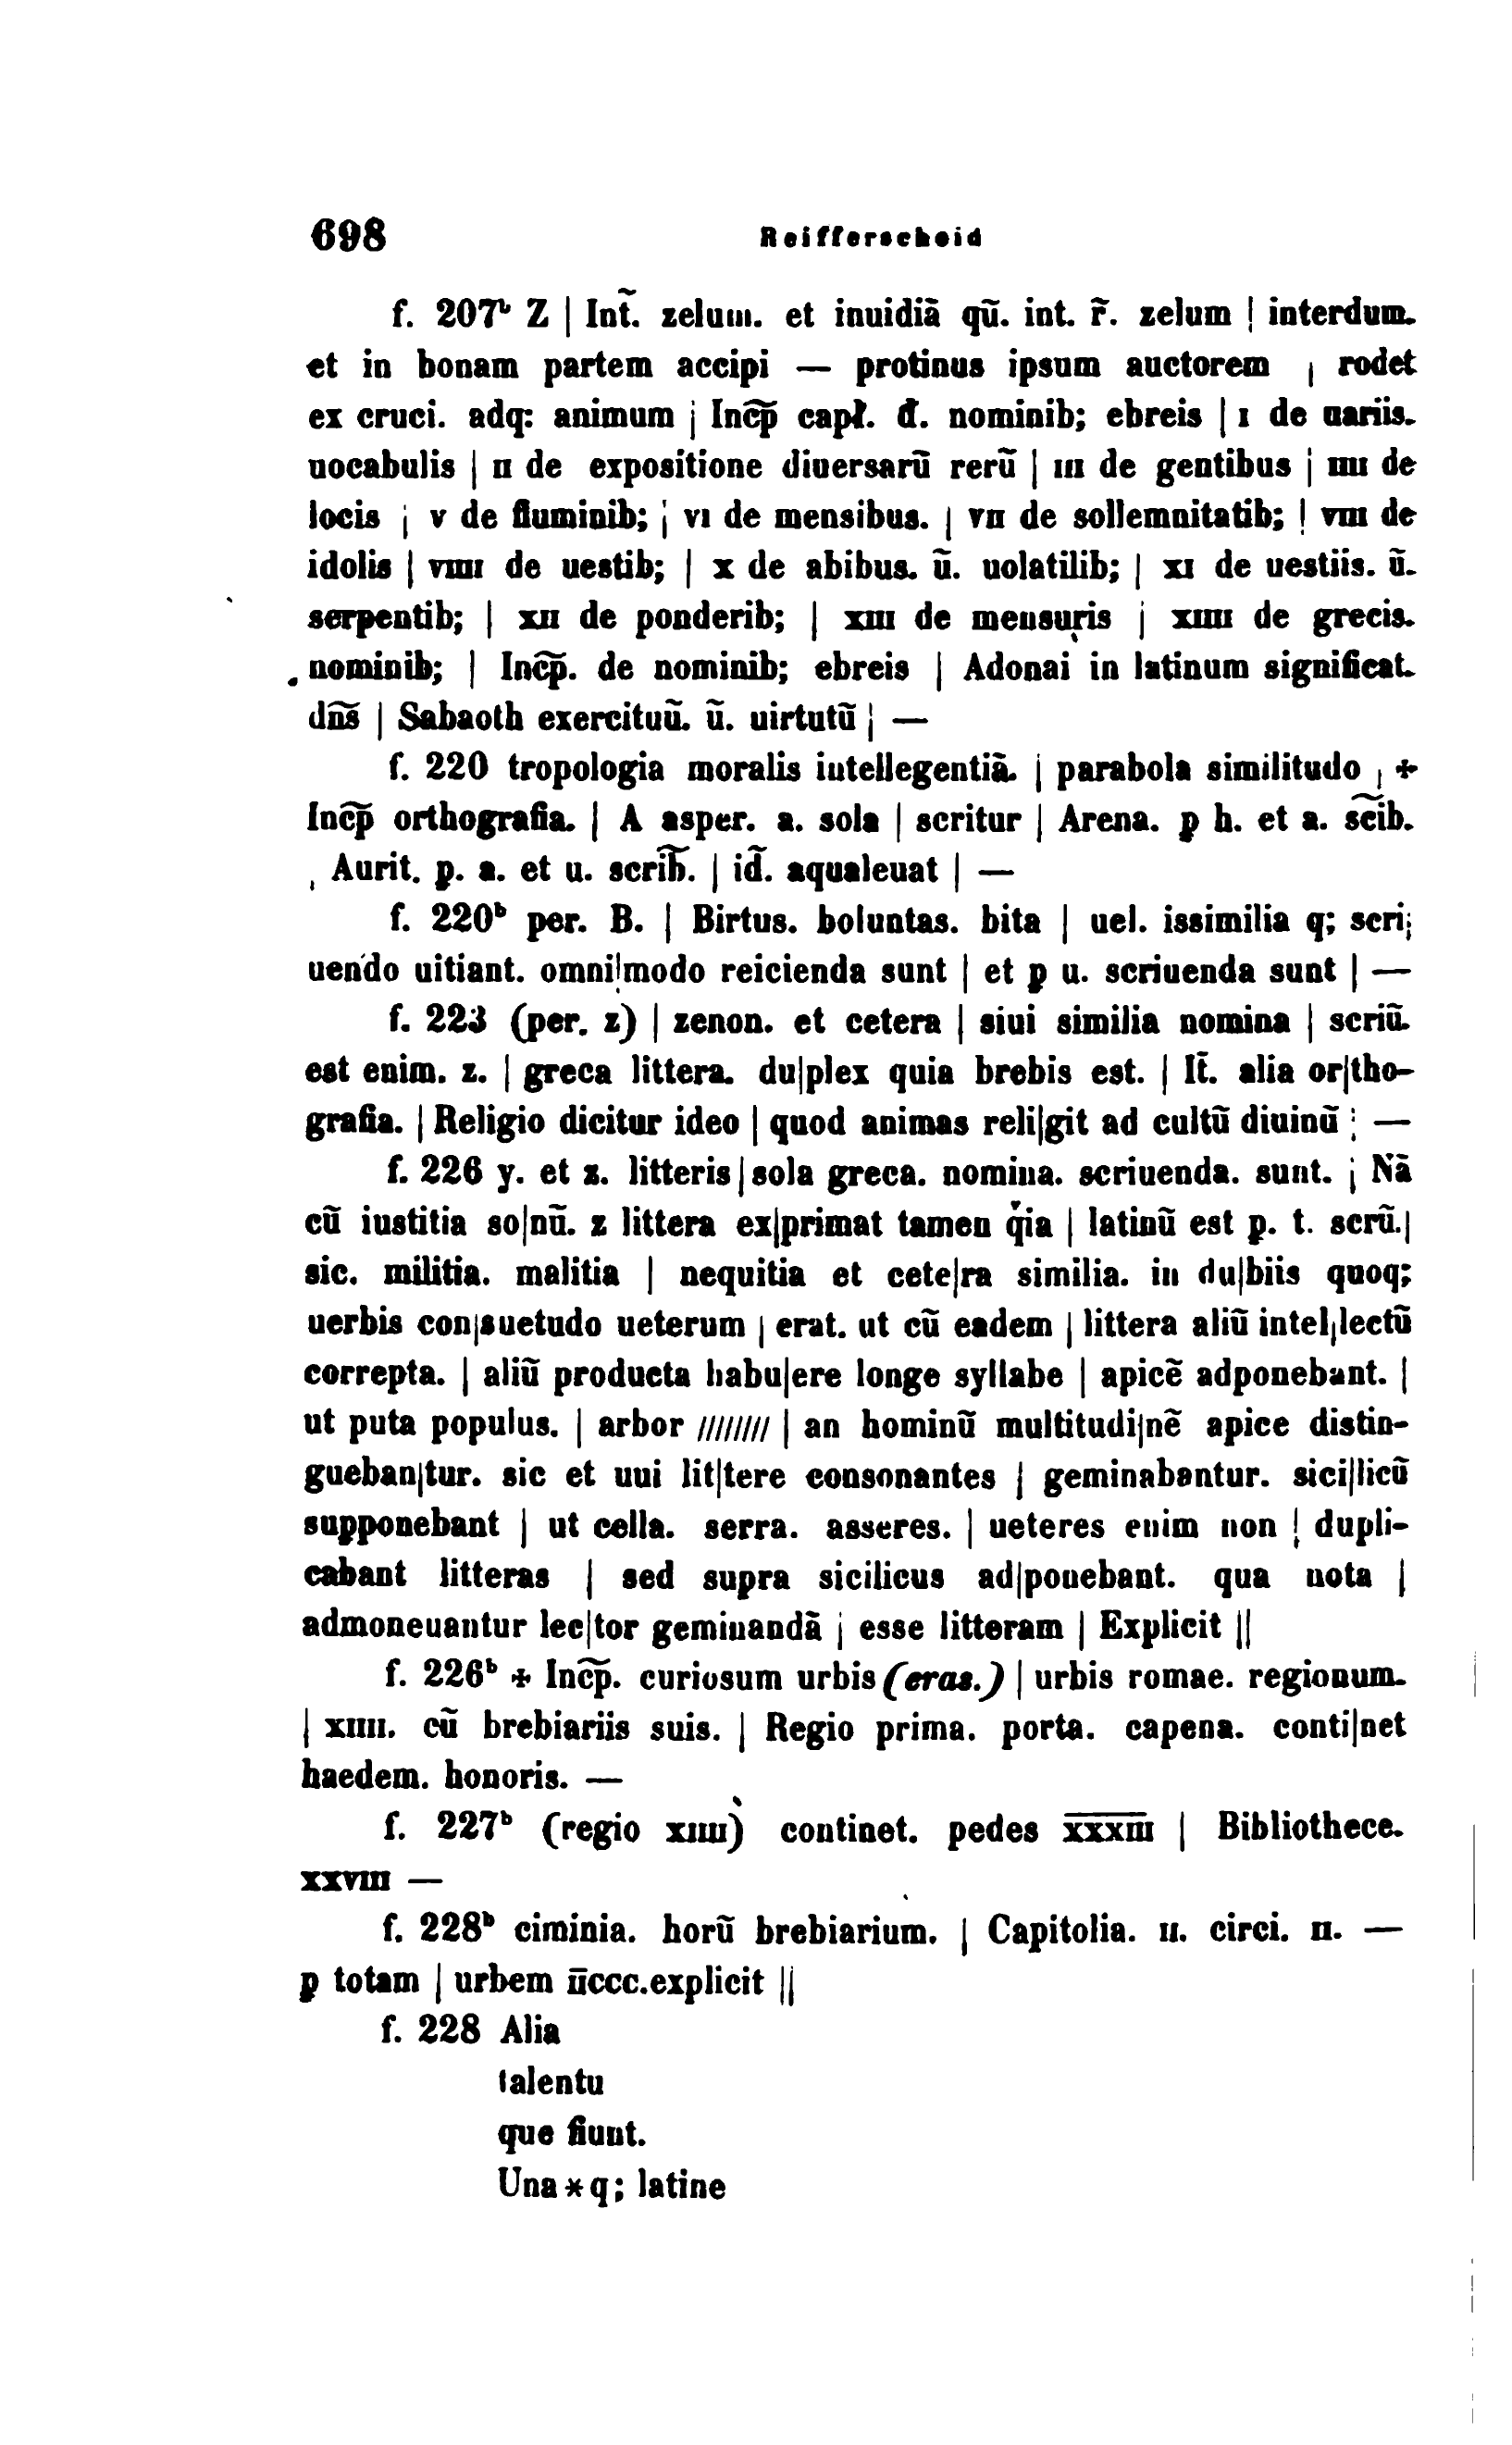 698 Reifferscheid
f. 207ᵇ Z | Int̃. zelum. et inuidiã qũ. int. r̃. zelum | interdum.
et in bonam partem accipi — protinus ipsum auctorem | rodet
ex cruci. adq: animum | Inc̃p̃ capł. đ. nominib; ebreis | ı de uariis.
uocabulis | ıı de expositione diuersarũ rerũ | ııı de gentibus | ıııı de
locis | v de fluminib; | vı de mensibus. | vıı de sollemnitatib; | vııı de
idolis | vıııı de uestib; | x de abibus. ũ. uolatilib; | xı de uestiis. ũ.
serpentib; | xıı de ponderib; | xııı de mensuris | xıııı de grecis.
nominib; | Inc̃p̃. de nominib; ebreis | Adonai in latinum significat.
dñs̃ | Sabaoth exercituũ. ũ. uirtutũ | —
f. 220 tropologia moralis intellegentiã. | parabola similitudo | +
Inc̃p̃ orthografia. | A asper. a. sola | scritur | Arena. ꝑ h. et a. sc̃ib.
| Aurit. ꝑ. a. et u. scrib̃. | id̃. aqualeuat | —
f. 220ᵇ per. B. | Birtus. boluntas. bita | uel. issimilia q; scri|
uendo uitiant. omni|modo reicienda sunt | et ꝑ u. scriuenda sunt | —
f. 223 (per. z) | zenon. et cetera | siui similia nomina | scriũ.
est enim. z. | greca littera. du|plex quia brebis est. | It̃. alia or|tho-
grafia. | Religio dicitur ideo | quod animas reli|git ad cultũ diuinũ | —
f. 226 y. et z. litteris | sola greca. nomina. scriuenda. sunt. | Nã
cũ iustitia so|nũ. z littera ex|primat tamen q̈ia | latinũ est ꝑ. t. scrũ.|
sic. militia. malitia | nequitia et cete|ra similia. in du|biis quoq;
uerbis con|suetudo ueterum | erat. ut cũ eadem | littera aliũ intel|lectũ
correpta. | aliũ producta habu|ere longe syllabe | apicẽ adponebant. |
ut puta populus. | arbor //////// | an hominũ multitudi|nẽ apice distin-
gueban|tur. sic et uui lit|tere consonantes | geminabantur. sici|licũ
supponebant | ut cella. serra. asseres. | ueteres enim non | dupli-
cabant litteras | sed supra sicilicus ad|ponebant. qua nota |
admoneuantur lec|tor geminandã | esse litteram | Explicit ||
f. 226ᵇ + Inc̃p̃. curiosum urbis (eras.) | urbis romae. regionum.
| xıııı. cũ brebiariis suis. | Regio prima. porta. capena. conti|net
haedem. honoris. —
f. 227ᵇ (regio xıııı) continet. pedes x̅x̅x̅ı̅ı̅ı̅ | Bibliothece.
xxvııı —
f. 228ᵇ ciminia. horũ brebiarium. | Capitolia. ıı. circi. ıı. —
ꝑ totam | urbem ı̅ı̅ccc.explicit ||
f. 228 Alia
talentu
que fiunt.
Una * q; latine